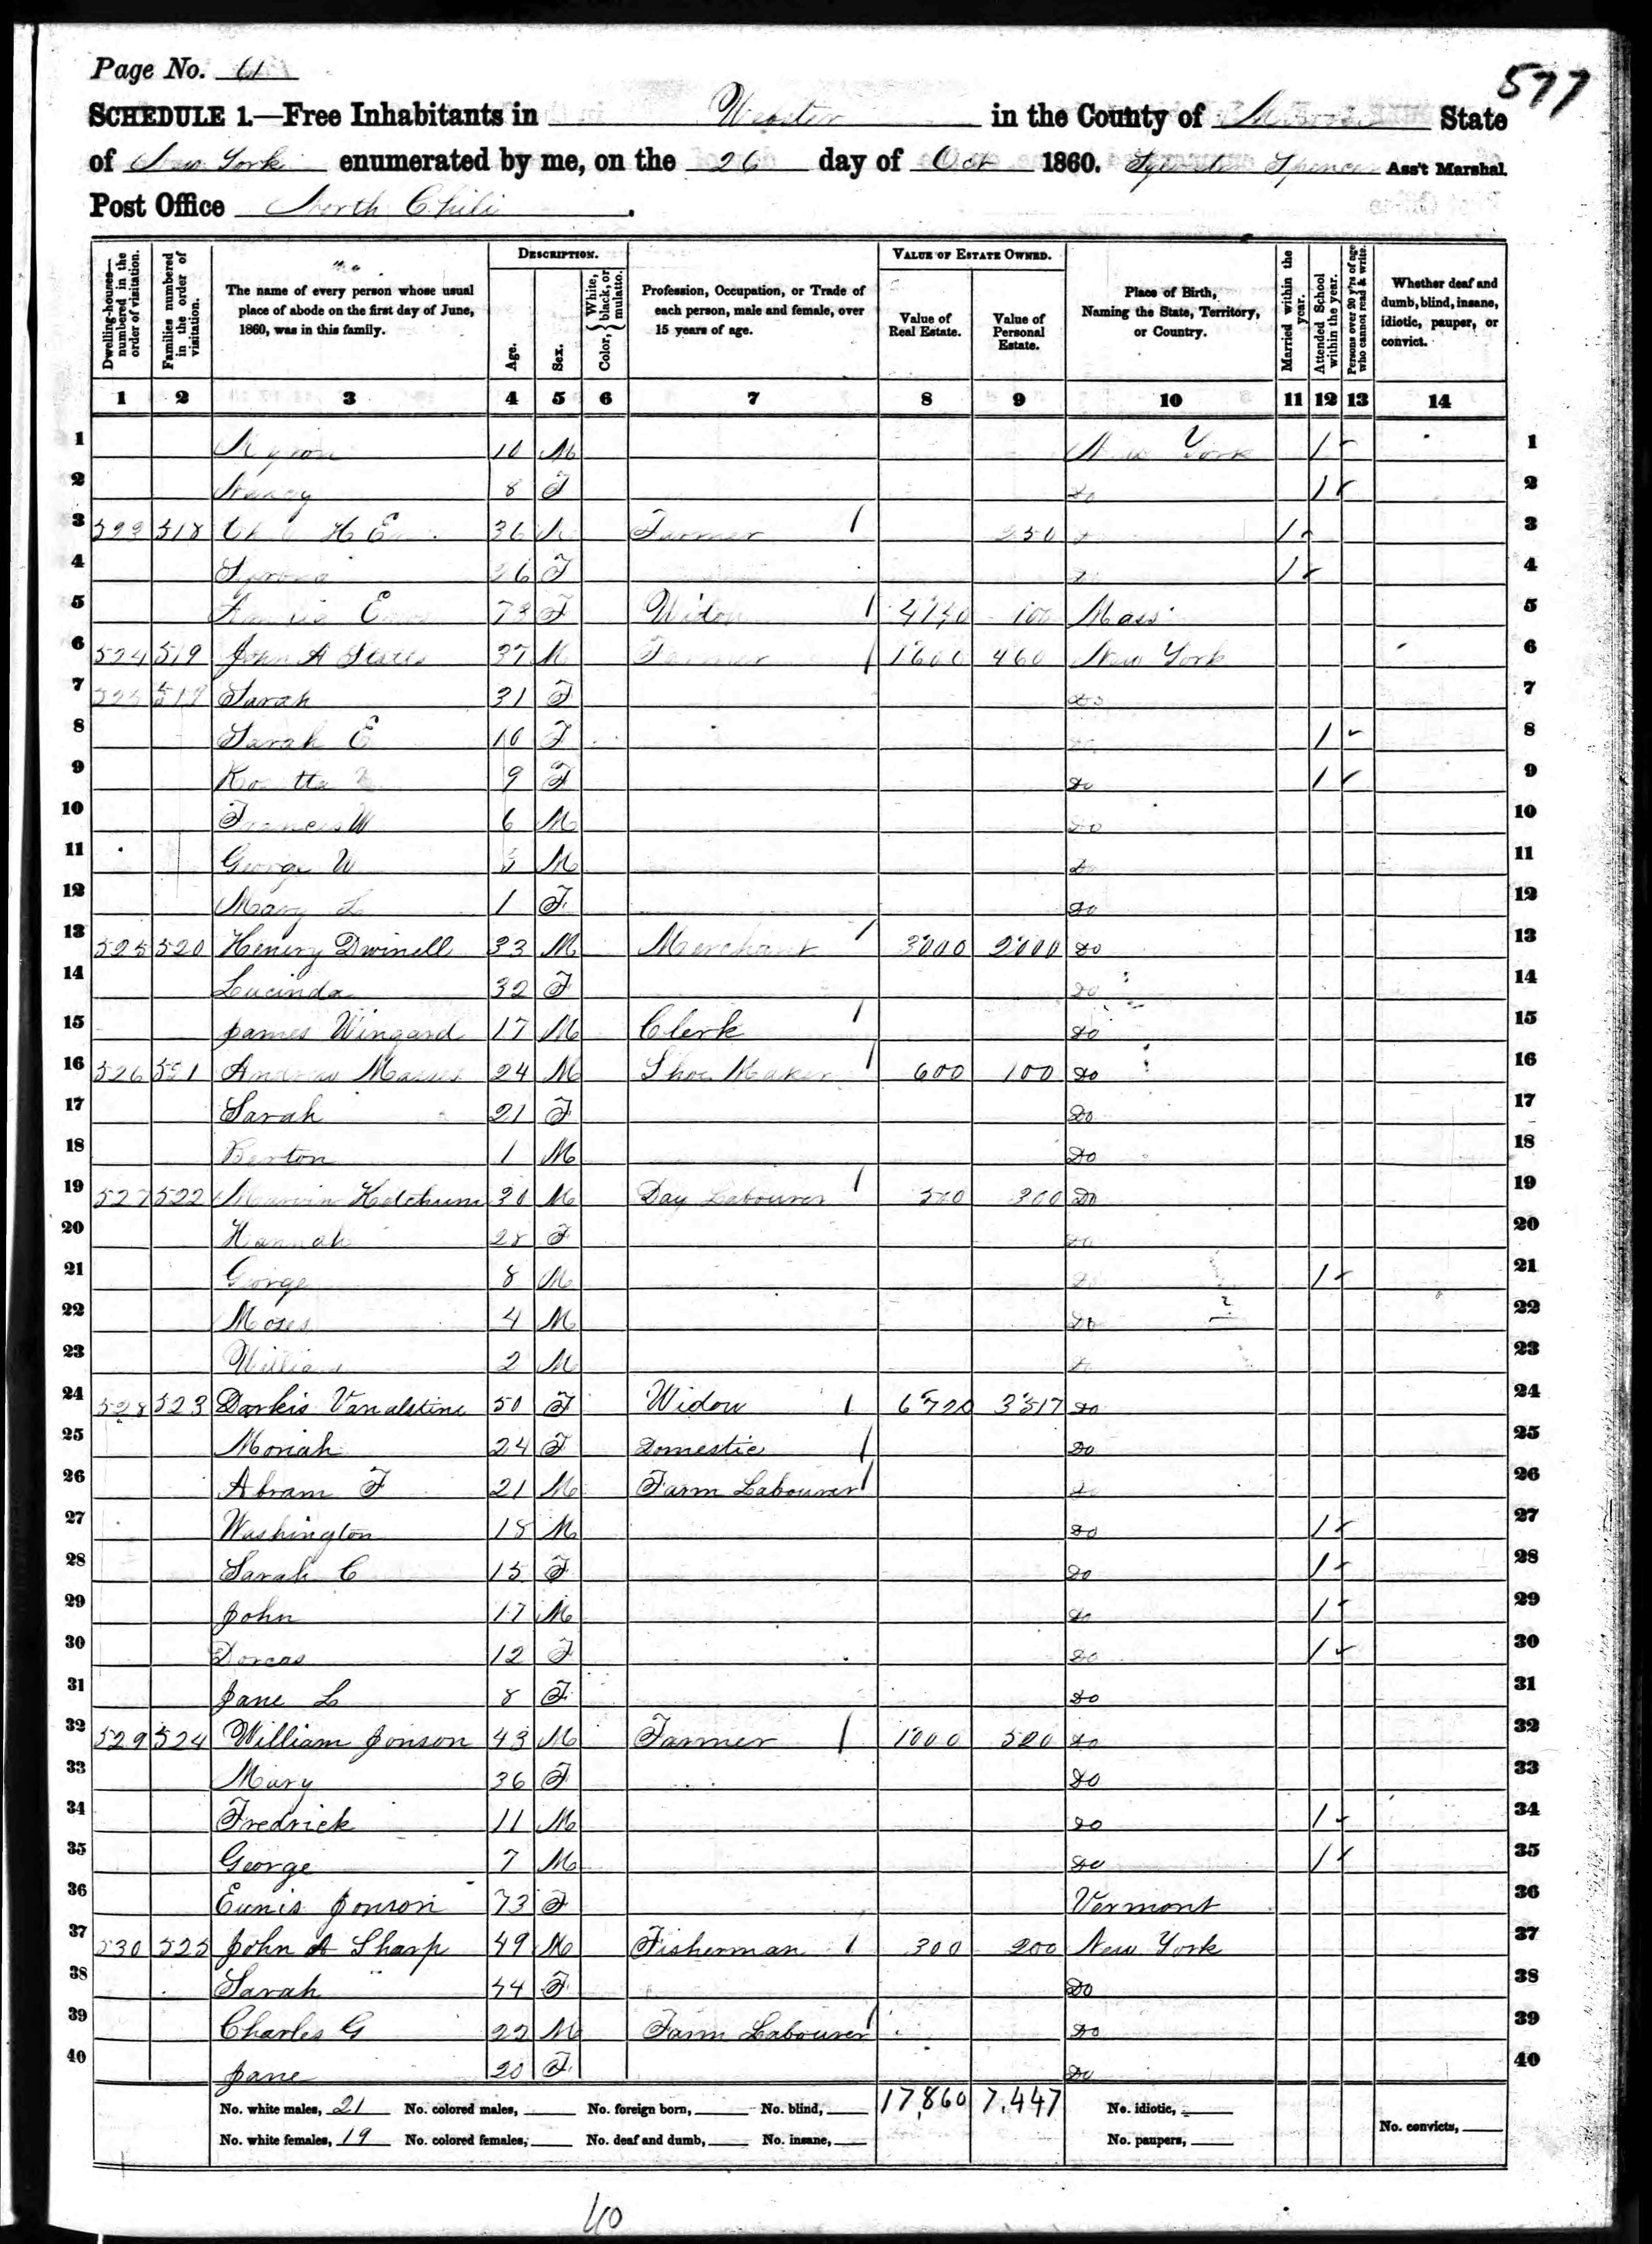 577
Page No. 61
SCHEDULE 1.—Free Inhabitants in Webster in the County of Monroe State
of New York enumerated by me, on the 26 day of Oct 1860. Sylvester Spencer Ass't Marshal.
Post Office North Chili.
Dwelling-houses—numbered in the order of visitation.
Families numbered in the order of visitation.
The name of every person whose usual place of abode on the first day of June, 1860, was in this family.
DESCRIPTION.
Age.
Sex.
Color, { White, black, or mulatto.
Profession, Occupation, or Trade of each person, male and female, over 15 years of age.
VALUE OF ESTATE OWNED.
Value of Real Estate.
Value of Personal Estate.
Place of Birth, Naming the State, Territory, or Country.
Married within the year.
Attended School within the year.
Persons over 20 y'rs of age who cannot read & write.
Whether deaf and dumb, blind, insane, idiotic, pauper, or convict.
1 2 3 4 5 6 7 8 9 10 11 12 13 14
1 Myron 10 M New York 1 1
2 Nancy 8 F do 1 2
3 523 518 H 36 M Farmer 1 250 do 1 3
4 26 F do 1 4
5 73 F Widow 1 100 Mass 5
6 524 519 John A 37 M Farmer 1 1600 460 New York 6
7 519 Sarah 31 F do 7
8 Sarah E 10 F do 1 8
9 9 F do 1 9
10 Francis W 6 M do 10
11 George W 3 M do 11
12 Mary L 1 F do 12
13 525 520 Henery Dwinell 33 M Merchant 1 3000 2000 do 13
14 Lucinda 32 F do 14
15 James Wingard 17 M Clerk 1 do 15
16 526 521 Andrew 24 M Shoe Maker 1 600 100 do 16
17 Sarah 21 F do 17
18 Burton 1 M do 18
19 527 522 Marvin Ketchum 30 M Day Labourer 1 500 300 do 19
20 Hannah 28 F do 20
21 Gorge 8 M do 1 21
22 Moses 4 M do 22
23 William 2 M do 23
24 528 523 Dorkis Vanalstine 50 F Widow 1 6720 3317 do 24
25 Moriah 24 F Domestic 1 do 25
26 Abram F 21 M Farm Labourer 1 do 26
27 Washington 18 M do 1 27
28 Sarah C 15 F do 1 28
29 John 17 M do 1 29
30 Dorcas 12 F do 1 30
31 Jane L 8 F do 31
32 529 524 William Jonson 43 M Farmer 1 1000 520 do 32
33 Mary 36 F do 33
34 Fredrick 11 M do 1 34
35 George 7 M do 1 35
36 Eunis Jonson 73 F Vermont 36
37 530 525 John A Sharp 49 M Fisherman 1 300 200 New York 37
38 Sarah 44 F do 38
39 Charles G 22 M Farm Labourer 1 do 39
40 Jane 20 F do 40
No. white males, 21 No. colored males, No. foreign born, No. blind, 17,860 7,447 No. idiotic, No. convicts,
No. white females, 19 No. colored females, No. deaf and dumb, No. insane, No. paupers,
40